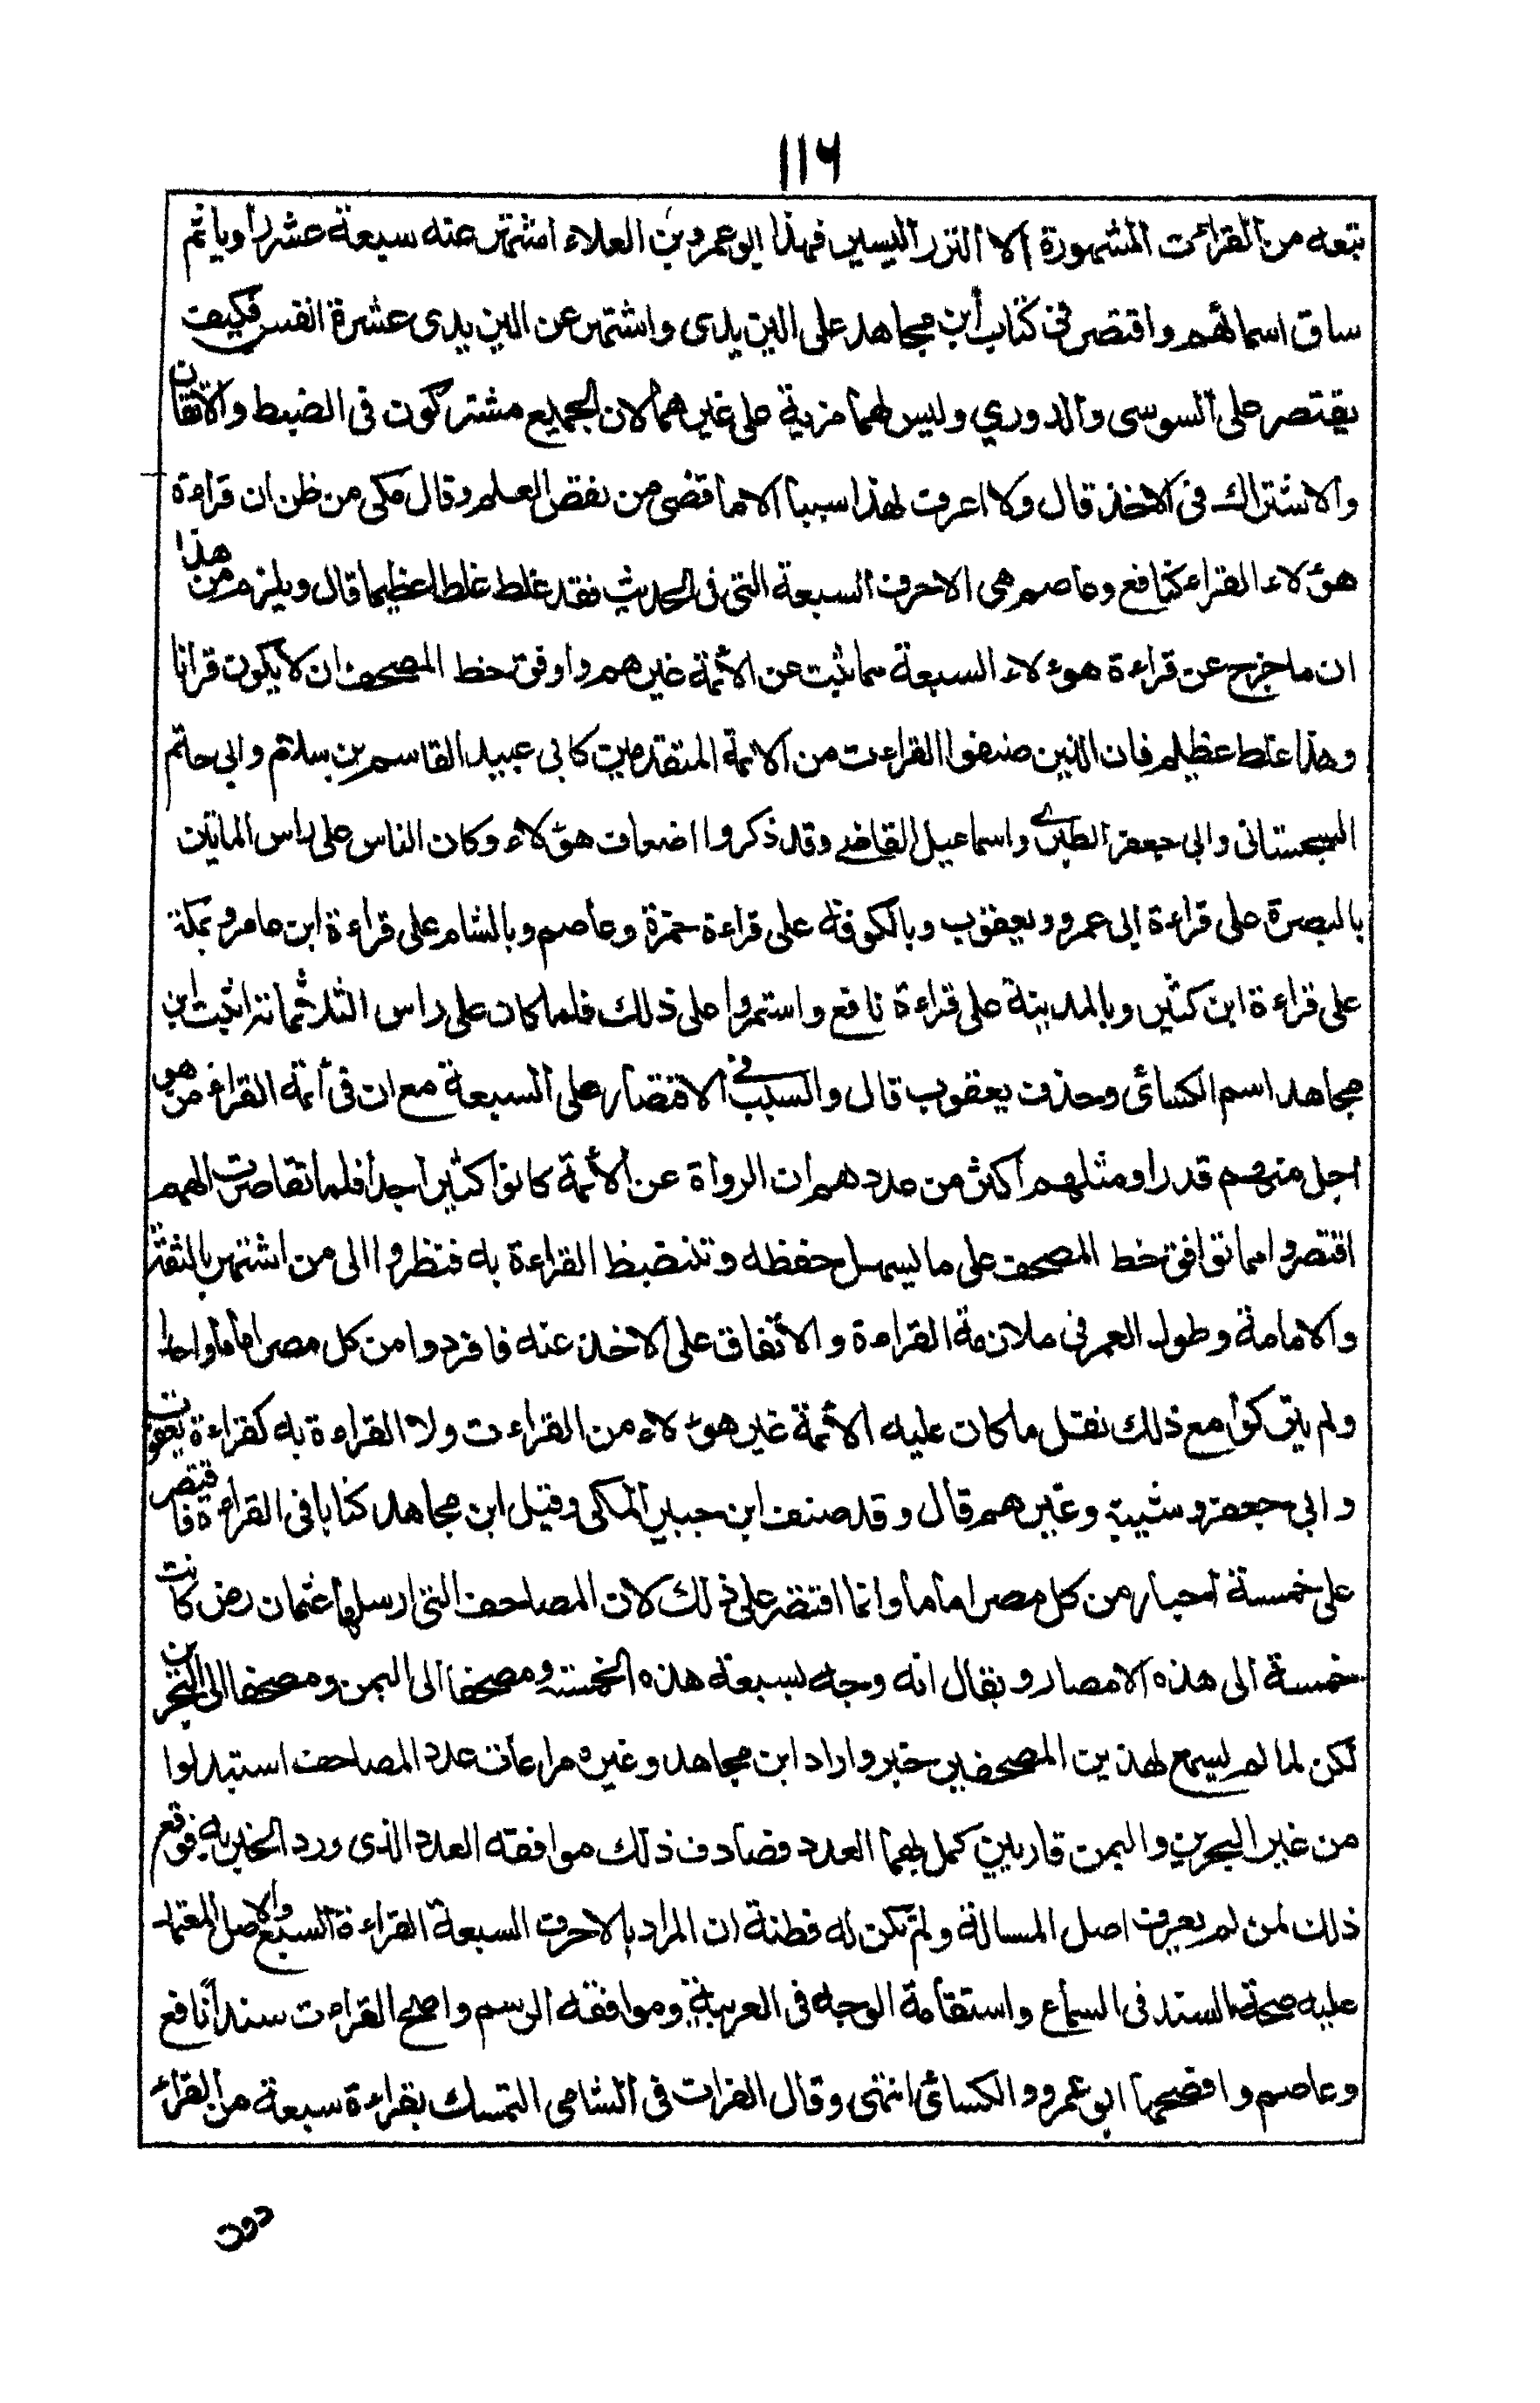 ١١٦
تبعه من القراءت المشهورة الا النزر اليسير فهذا ابو عمرو بن العلاء اشتهر عنه سبعة عشر راويا ثم
ساق اسمائهم واقتصر في كتاب ابن مجاهد على اليزيدى واشتهر عن اليزيدى عشرة انفس فكيف
يقتصر على السوسى والدوري وليس لهما مزية على غيرهما لان الجميع مشتركون فى الضبط والاتقان
والاشتراك فى الاخذ قال ولا اعرف لهذا سببا الا ما قضى من نقص العلم وقال مكى من ظن ان قراءة
هؤلاء القراء كنافع وعاصم هى الاحرف السبعة التى فى الحديث فقد غلط غلطا عظيما قال ويلزم من هذا
ان ما خرج عن قراءة هوءلاء السبعة مما ثبت عن الأئمة غيرهم واوفق خط المصحف ان لا يكون قرانا
وهذا غلط عظيم فان الذين صنفوا القراءت من الائمة المتقدمين كابى عبيد القاسم بن سلام وابى حاتم
السجستانى وابى جعفر الطبرى واسماعيل القاضى وقد ذكروا اضعاف هؤلاء وكان الناس على راس الماتين
بالبصرة على قراءة ابى عمرو ويعقوب وبالكوفة على قراءة حمزة وعاصم وبالشام على قراءة ابن عامر وبمكة
على قراءة ابن كثير وبالمدينة على قراءة نافع واستمروا على ذلك فلما كان على راس الثلاثمائة اثبت ابن
مجاهد اسم الكسائى وحذف يعقوب قال والسبب فى الاقتصار على السبعة مع ان فى أئمة القراء من هو
اجل منهم قدرا ومثلهم اكثر من عددهم ان الرواة عن الأئمة كانوا كثيرا جدا فلما تقاصرت الهمم
اقتصروا مما توافق خط المصحف على ما يسهل حفظه وتنضبظ القراءة به فنظروا الى من اشتهر بالثقة
والامامة وطول العمر فى ملازمة القراءة والأتفاق على الاخذ عنه فافردوا من كل مصر اماما واحدا
ولم يتركوا مع ذلك نقل ما كان عليه الأئمة غير هؤلاء من القراءت ولا القراءة به كقراءة يعقوب
وابى جعفر وشيبة وغيرهم قال وقد صنف ابن جبير المكى وقبل ابن مجاهد كتابا فى القراءة فاقتصر
على خمسة احبار من كل مصر اماما وانما اقتصر على ذلك لان المصاحف التى ارسلها عثمان رض كانت
خمسة الى هذه الامصار ويقال انه وجه بسبعة هذه الخمسة ومصحفا الى اليمن ومصحفا الى البحرين
لكن لما لم يسمع لهذين المصحفين خبر واراد ابن مجاهد وغيره مراعات عدد المصاحف استبدلوا
من غير البحرين واليمن قاريين كمل بهما العدد فصادف ذلك موافقة العدد الذى ورد الخبر به فوقع
ذلك لمن لم يعرف اصل المسالة ولم تكن له فطنة ان المراد بالاحرف السبعة القراءة السبع والاصل المعتمد
عليه صحة السند فى السماع واستقامة الوجه فى العربية وموافقة الرسم واصح القراءت سندا نافع
وعاصم وافصحها ابو عمرو والكسائى انتهى وقال القراب فى الشامى التمسك بقراءة سبعة من القراء
دون